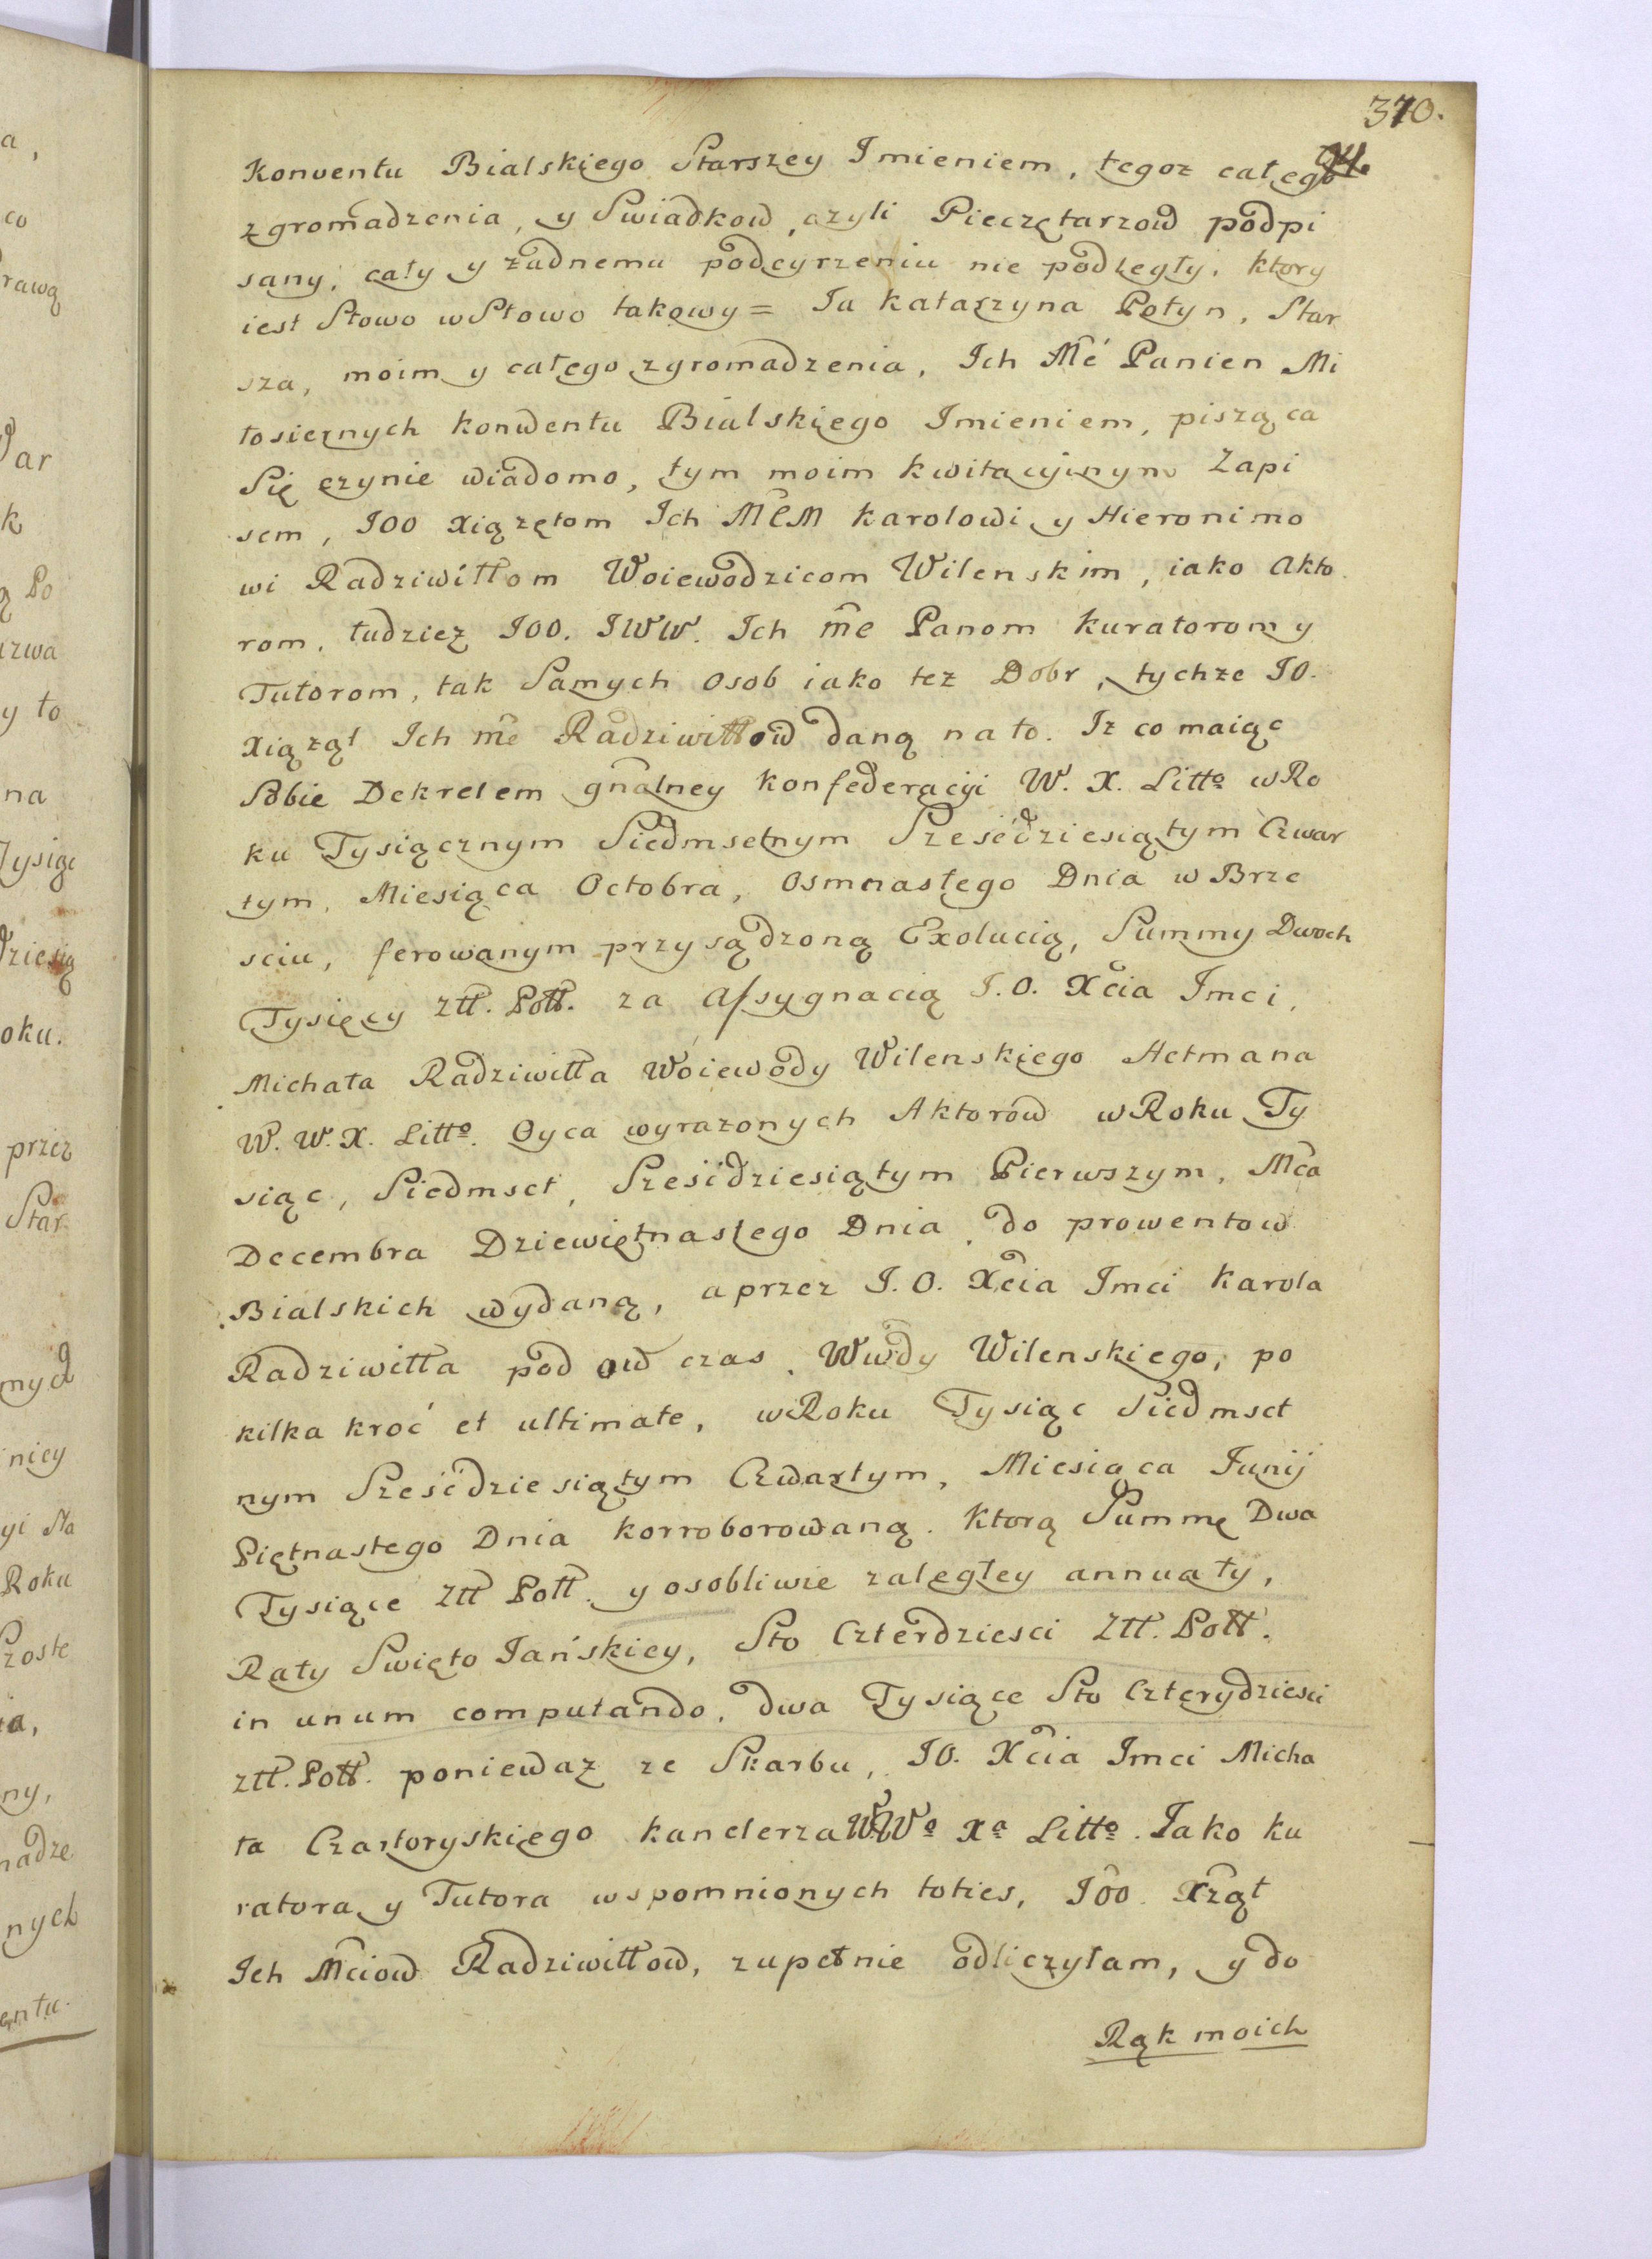 370.
94.
Konventu Bialskiego Starszey Imieniem, tegoz całego
zgromadzenia, y Swiadkow, czyli Pieczętarzow podpi
sany, cały y zadnemu podeyrzeniu nie podległy, ktory
iest Słowo w Słowo takowy = Ia Katarzyna Potyn, Star
sza, moim y całego zgromadzenia, Ich Mć Panien Mi
łosiernych konwentu Bialskiego Imieniem, pisząca
Się czynie wiadomo, tym moim kwitacyjnym Zapi
sem, IOO Xiązętom Ich MCM Karolowi y Hieronimo
wi Radziwiłłom Woiewodzicom Wilenskim, iako Akto
rom, tudziez IOO. IWW. Ich mć Panom Kuratorom y
Tutorom, tak Samych Osob iako tez Dobr, tychze IO.
Xiąząt Ich mć Radziwiłłow daną na to. Iz co maiąc
Sobie Dekretem gnalney Konfederacyi W. X. Litto w Ro
ku Tysiącznym Siedmsetnym Sześćdziesiątym Czwar
tym, Miesiąca Octobra, Osmnastego Dnia w Brze
sciu, ferowanym przysądzoną Exolucią, Summy Dwoch
Tysięcy ztł. Poll. za Assygnacią I. O. Xcia Imci,
Michała Radziwiłła Woiewody Wilenskiego Hetmana
W. W. X. Litto. Oyca wyrazonych Aktorów w Roku Ty
siąc, Siedmset, Sześćdziesiątym Pierwszym, Mca
Decembra Dziewiętnastego Dnia, do prowentow
Bialskich wydaną, a przez I. O. Xcia Imci Karola
Radziwiłła pod ow czas, Wwdy Wilenskiego, po
kilka kroć et ultimate, w Roku Tysiąc Siedmset
nym Sześćdziesiątym Czwartym, Miesiąca Iunij
Piętnastego Dnia korroborowaną. Ktorą Summę Dwa
Tysiące Ztł Poll. y osobliwie zaległey annuaty,
Raty Swięto Iańskiey, Sto Czterdziesci Ztł. Poll.
in unum computando, dwa Tysiące Sto Czterydziesci
ztł. Poll. poniewaz ze Skarbu, IO. Xcia Imci Micha
ła Czartoryskiego kanclerza WWo Xa Litto. Iako ku
ratora y Tutora wspomnionych toties, IOO. Xząt
Ich Mciow Radziwiłłow, zupełnie odliczyłam, y do
Rąk moich